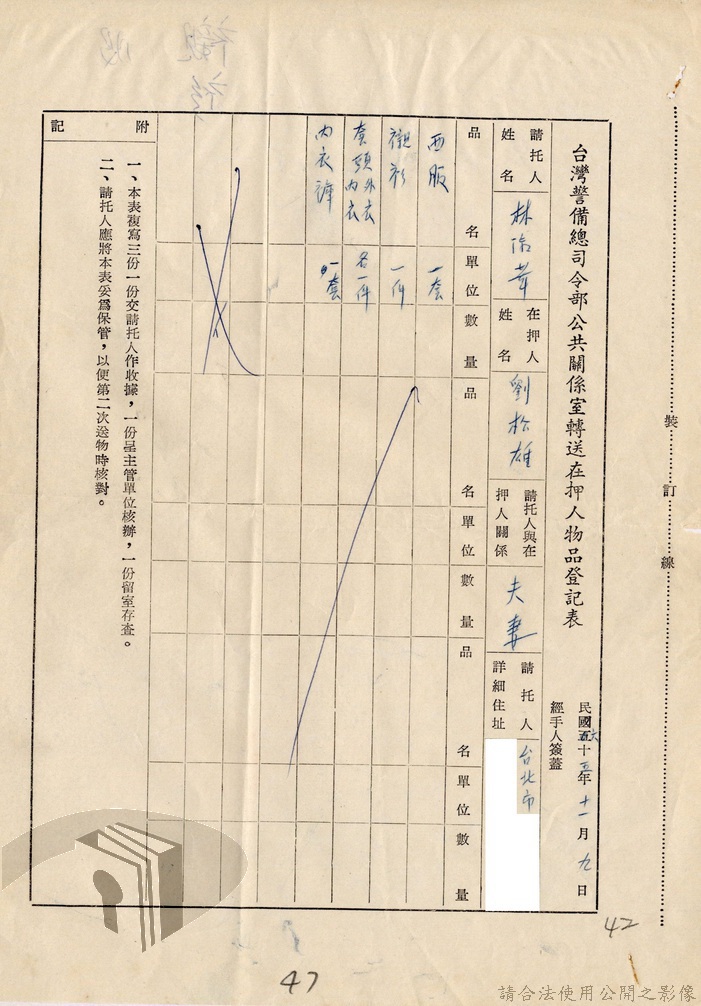 裝訂線
台灣警備總司令部公共關係室轉送在押人物品登記表
民國六十五年十一月九日
經手人簽蓋
請托人姓名
林 華
在押人姓名
劉松雄
請托人與在押人關係
夫妻
請托人詳細住址
台北市
品名 單位 數量 品名 單位 數量 品名 單位 數量
西服 一套
襯衫 一件
套頭外衣內衣 各一件
內衣褲 一套
附記
一、本表複寫三份一份交請托人作收據，一份呈主管單位核辦，一份留室存查。
二、請托人應將本表妥爲保管，以便第二次送物時核對。
42
47
請合法使用公開之影像